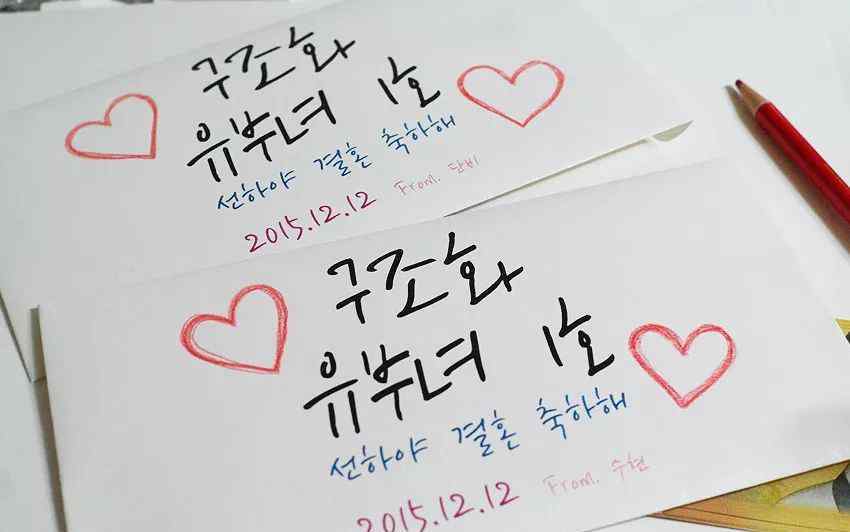 구조화
유부녀 1호
선하야 결혼 축하해
2015.12.12 From. 단비
구조화
유부녀 1호
선하야 결혼 축하해
2015.12.12 From. 수현